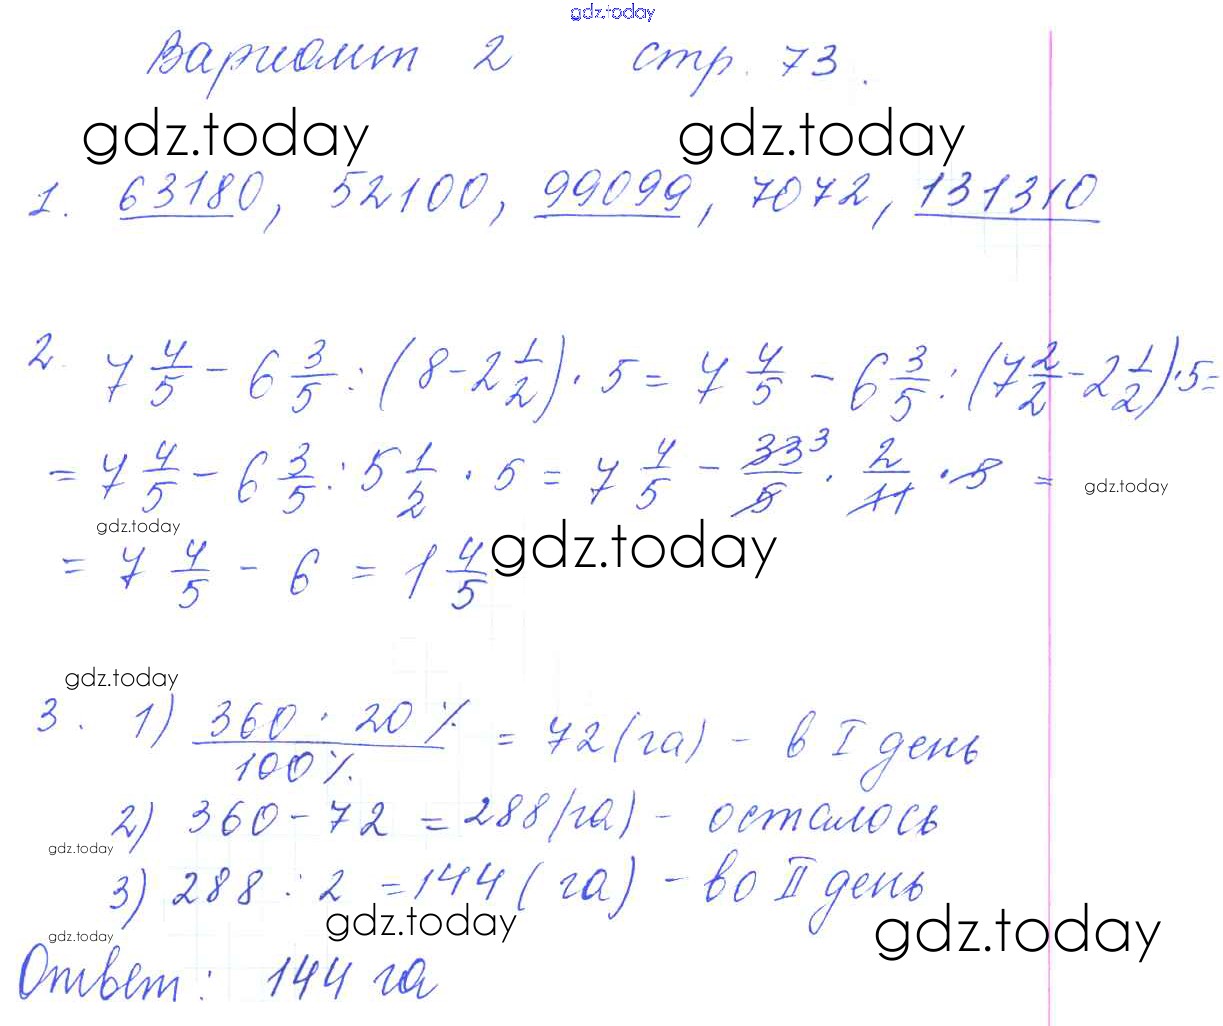 gdz.today
Вариант 2 стр. 73.
gdz.today gdz.today
1. 63180, 52100, 99099, 7072, 131310
2. 7 4/5 - 6 3/5 : (8 - 2 1/2) · 5 = 7 4/5 - 6 3/5 : (7 2/2 - 2 1/2) · 5 =
= 7 4/5 - 6 3/5 : 5 1/2 · 5 = 7 4/5 - 33³/5 · 2/11 · 5 =
gdz.today
gdz.today
= 7 4/5 - 6 = 1 4/5
gdz.today
gdz.today
3. 1) 360 · 20% / 100% = 72 (га) - в I день
2) 360 - 72 = 288 (га) - осталось
gdz.today
3) 288 : 2 = 144 (га) - во II день
gdz.today
gdz.today
gdz.today
Ответ: 144 га